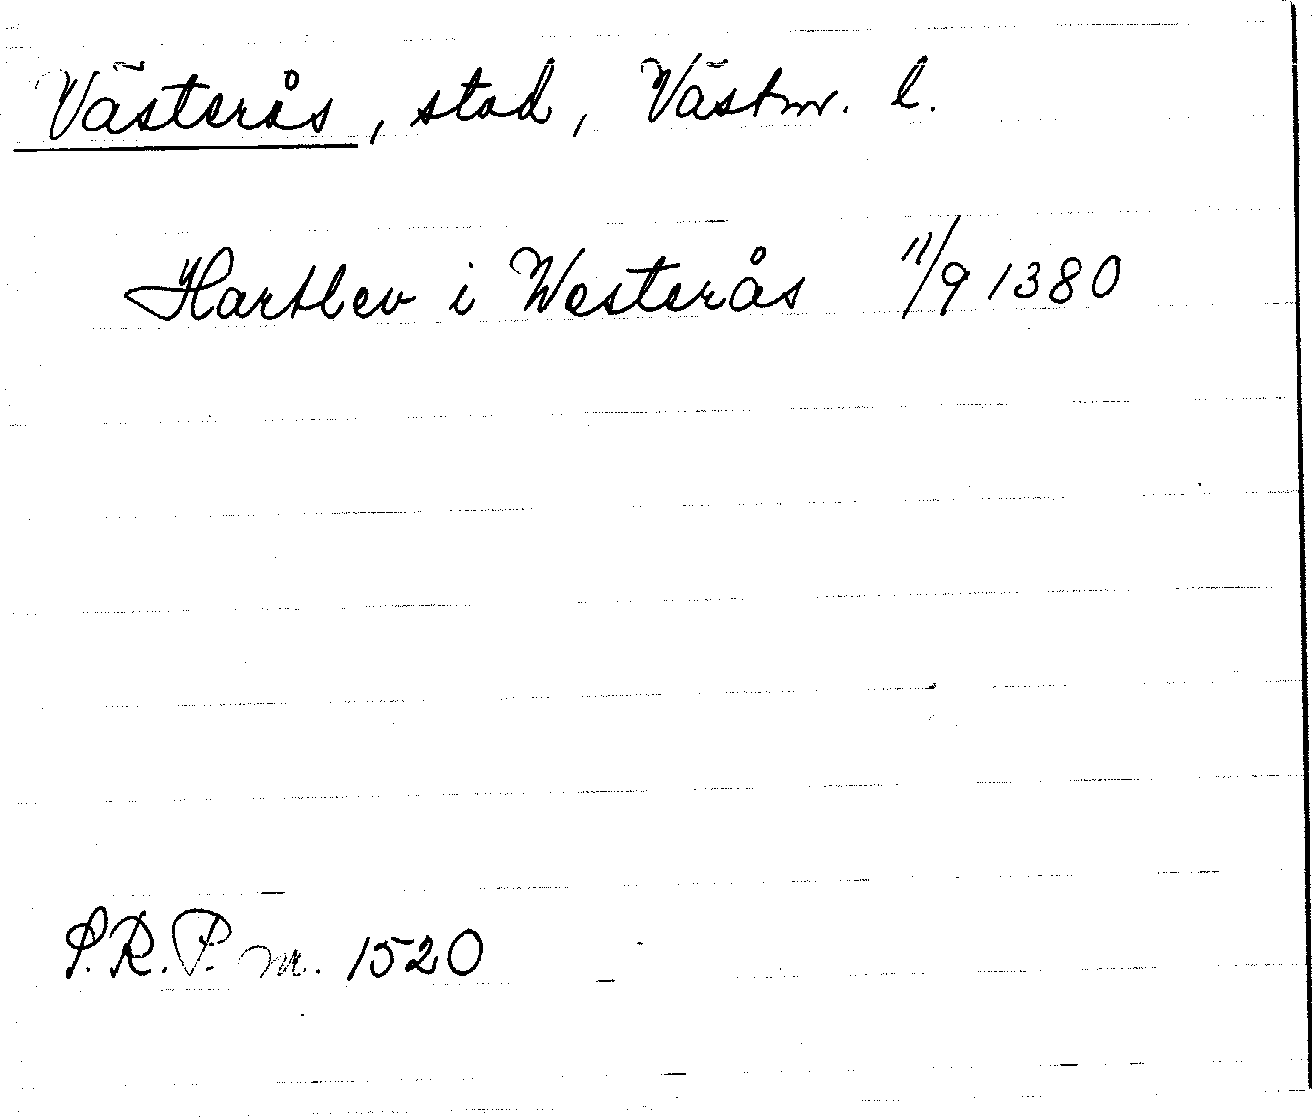 Västerås, stad, Västm. l.
Hartlev i Westerås 11/9 1380
S.R.P. nr. 1520